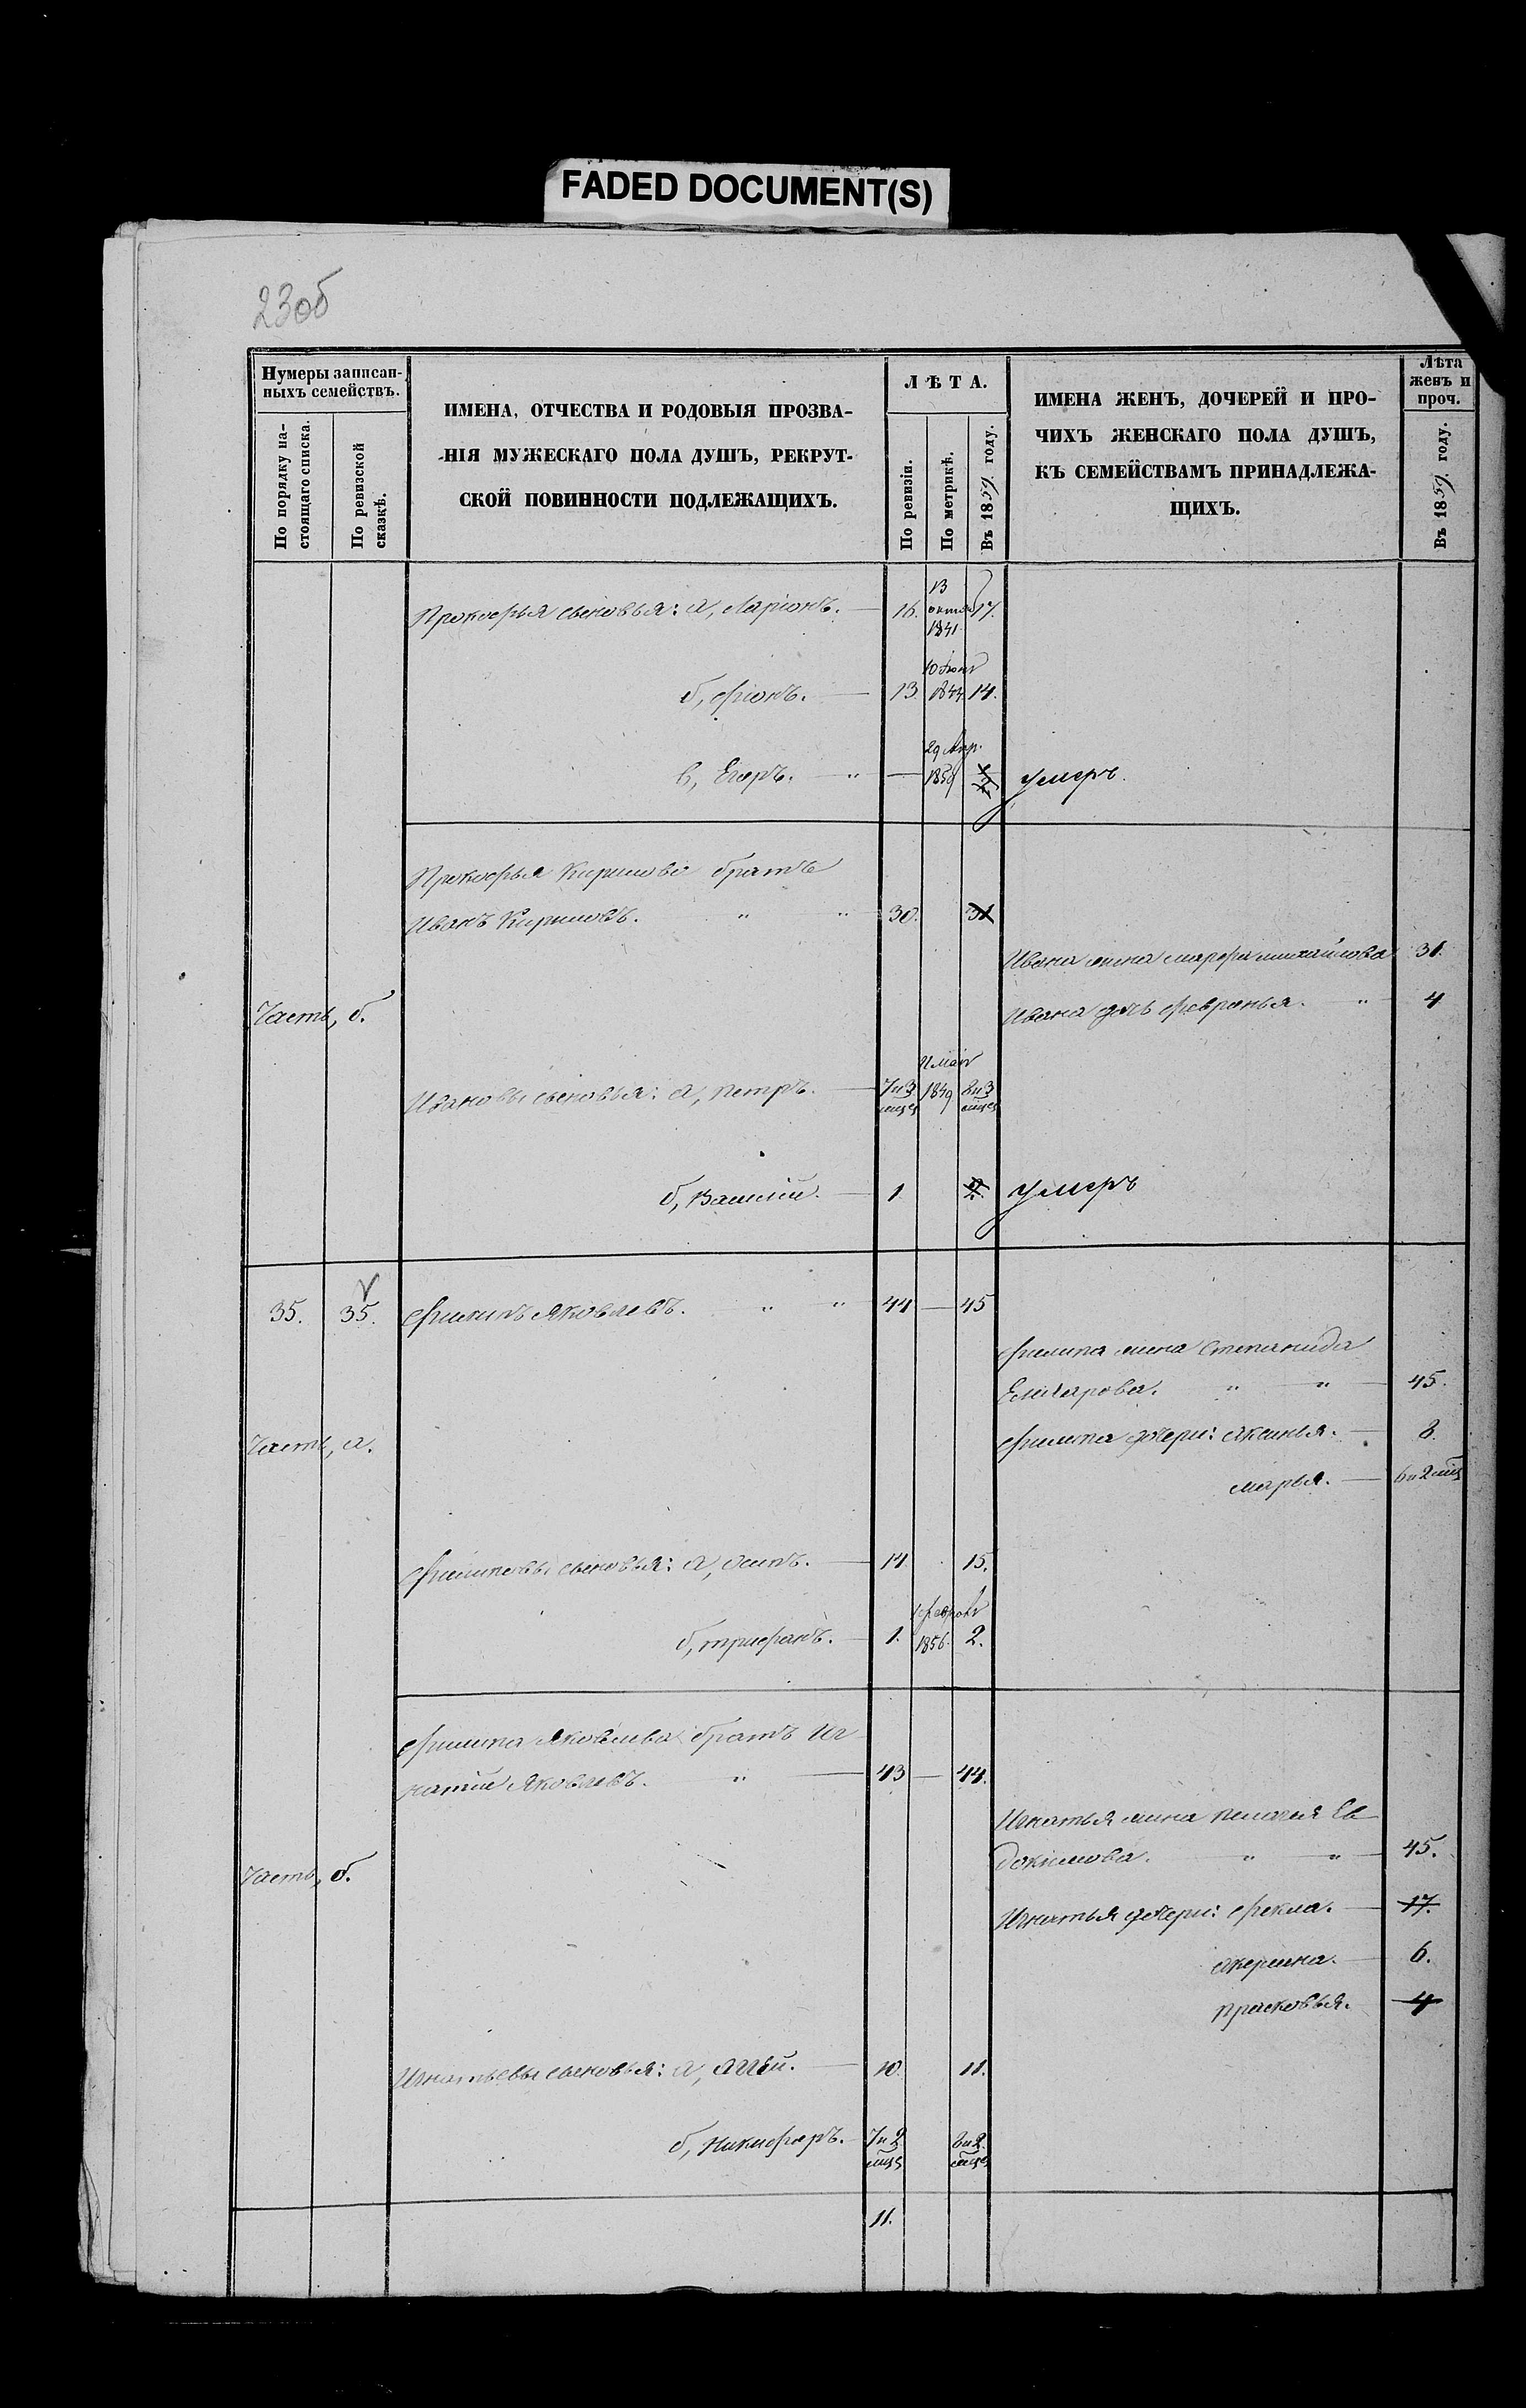 FADED DOCUMENT(S)
23об
Нумеры записан-
ныхъ семействъ.
По порядку на-
стоящаго списка.
По ревизской
сказкѣ.
ИМЕНА, ОТЧЕСТВА И РОДОВЫЯ ПРОЗВА-
НІЯ МУЖЕСКАГО ПОЛА ДУШЪ, РЕКРУТ-
СКОЙ ПОВИННОСТИ ПОДЛЕЖАЩИХЪ.
ЛѢТА.
По ревизіи.
По метрикѣ.
Въ 1859. году.
ИМЕНА ЖЕНЪ, ДОЧЕРЕЙ И ПРО-
ЧИХЪ ЖЕНСКАГО ПОЛА ДУШЪ,
КЪ СЕМЕЙСТВАМЪ ПРИНАДЛЕЖА-
ЩИХЪ.
Лѣта
женъ и
проч.
Въ 1859. году.
Прокофья сыновья: а, Ларіонъ. 16. 13 октяб 1841 17.
б, Фіонъ. 13. 10 1844 14.
в, Егоръ. " — 29 Апр. 1858 умеръ.
Прокофья Кирилова братъ
Иванъ Кириловъ. " " 30. 31
Ивана жена Марфа Михайлова 31.
Часть, б.
Ивана дочь Февронья. " 4
Ивановы сыновья: а, Петръ. 7 и 3 мѣсец Май 1849 8 и 3 мѣсец
б, Василій. 1. 2. умеръ
35. 35. Филипъ Яковлевъ. " " 44 — 45
Филипа жена Степанида
Елизарова. " " 45.
Часть, а.
Филипа дочери: Аксинья. 8.
Марья. 6 и 2 мѣс
Филиповы сыновья: а, Осипъ. 14. 15.
б, Трифонъ. 1. Феврал 1856. 2.
Филипа Яковлева братъ Иг
натій Яковлевъ. " 43 — 44.
Игнатья жена Пелагея Ев
докимова. " " 45.
Часть, б.
Игнатья дочери: Фекла. 17.
Акерина. 6.
Прасковья. 4
Игнатьевы сыновья: а, Аггѣй. 10. 11.
б, Никифоръ. 7 и 2 мѣсц 8 и 2 мѣсц
11.